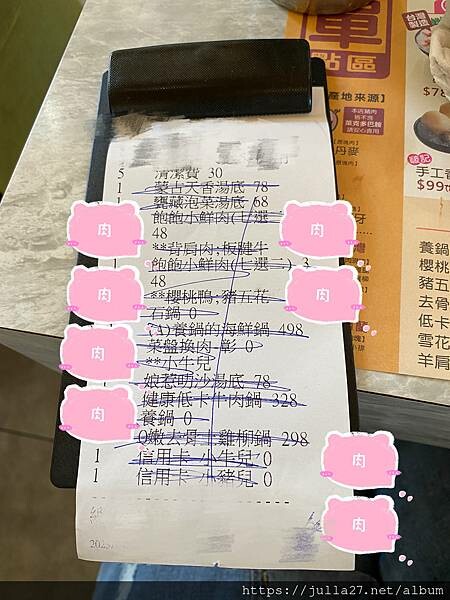 單
點區
產地來源】
本店豬肉
皆不含
萊克多巴胺
請安心食用
丹麥
台灣
製造
$78
順記
手工香
$99
養鍋
櫻桃
豬五
去骨
低卡
雪花
羊肩
5 清潔費 30
1 蒙古天香湯底 78
1 甕藏泡菜湯底 68
飽飽小鮮肉(七選二)
48
**背肩肉;板腱牛
飽飽小鮮肉(七選二) 3
48
**櫻桃鴨;豬五花
石鍋 0
(A)養鍋的海鮮鍋 498
菜盤換肉-彰 0
**小牛兒
娘惹叻沙湯底 78
健康低卡牛肉鍋 328
養鍋 0
Q嫩去骨土雞柳鍋 298
1 信用卡-小牛兒 0
1 信用卡-小豬兒 0
肉
肉
肉
肉
肉
肉
肉
肉
202
https://julla27.net/album